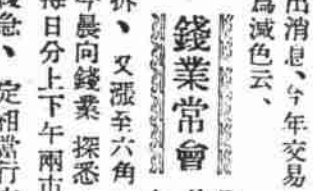 出消息、今年交易
爲減色云、
錢業常會
拆、又漲至六角
今晨向錢業探悉
每日分上下午兩市
緩急、定相當行市